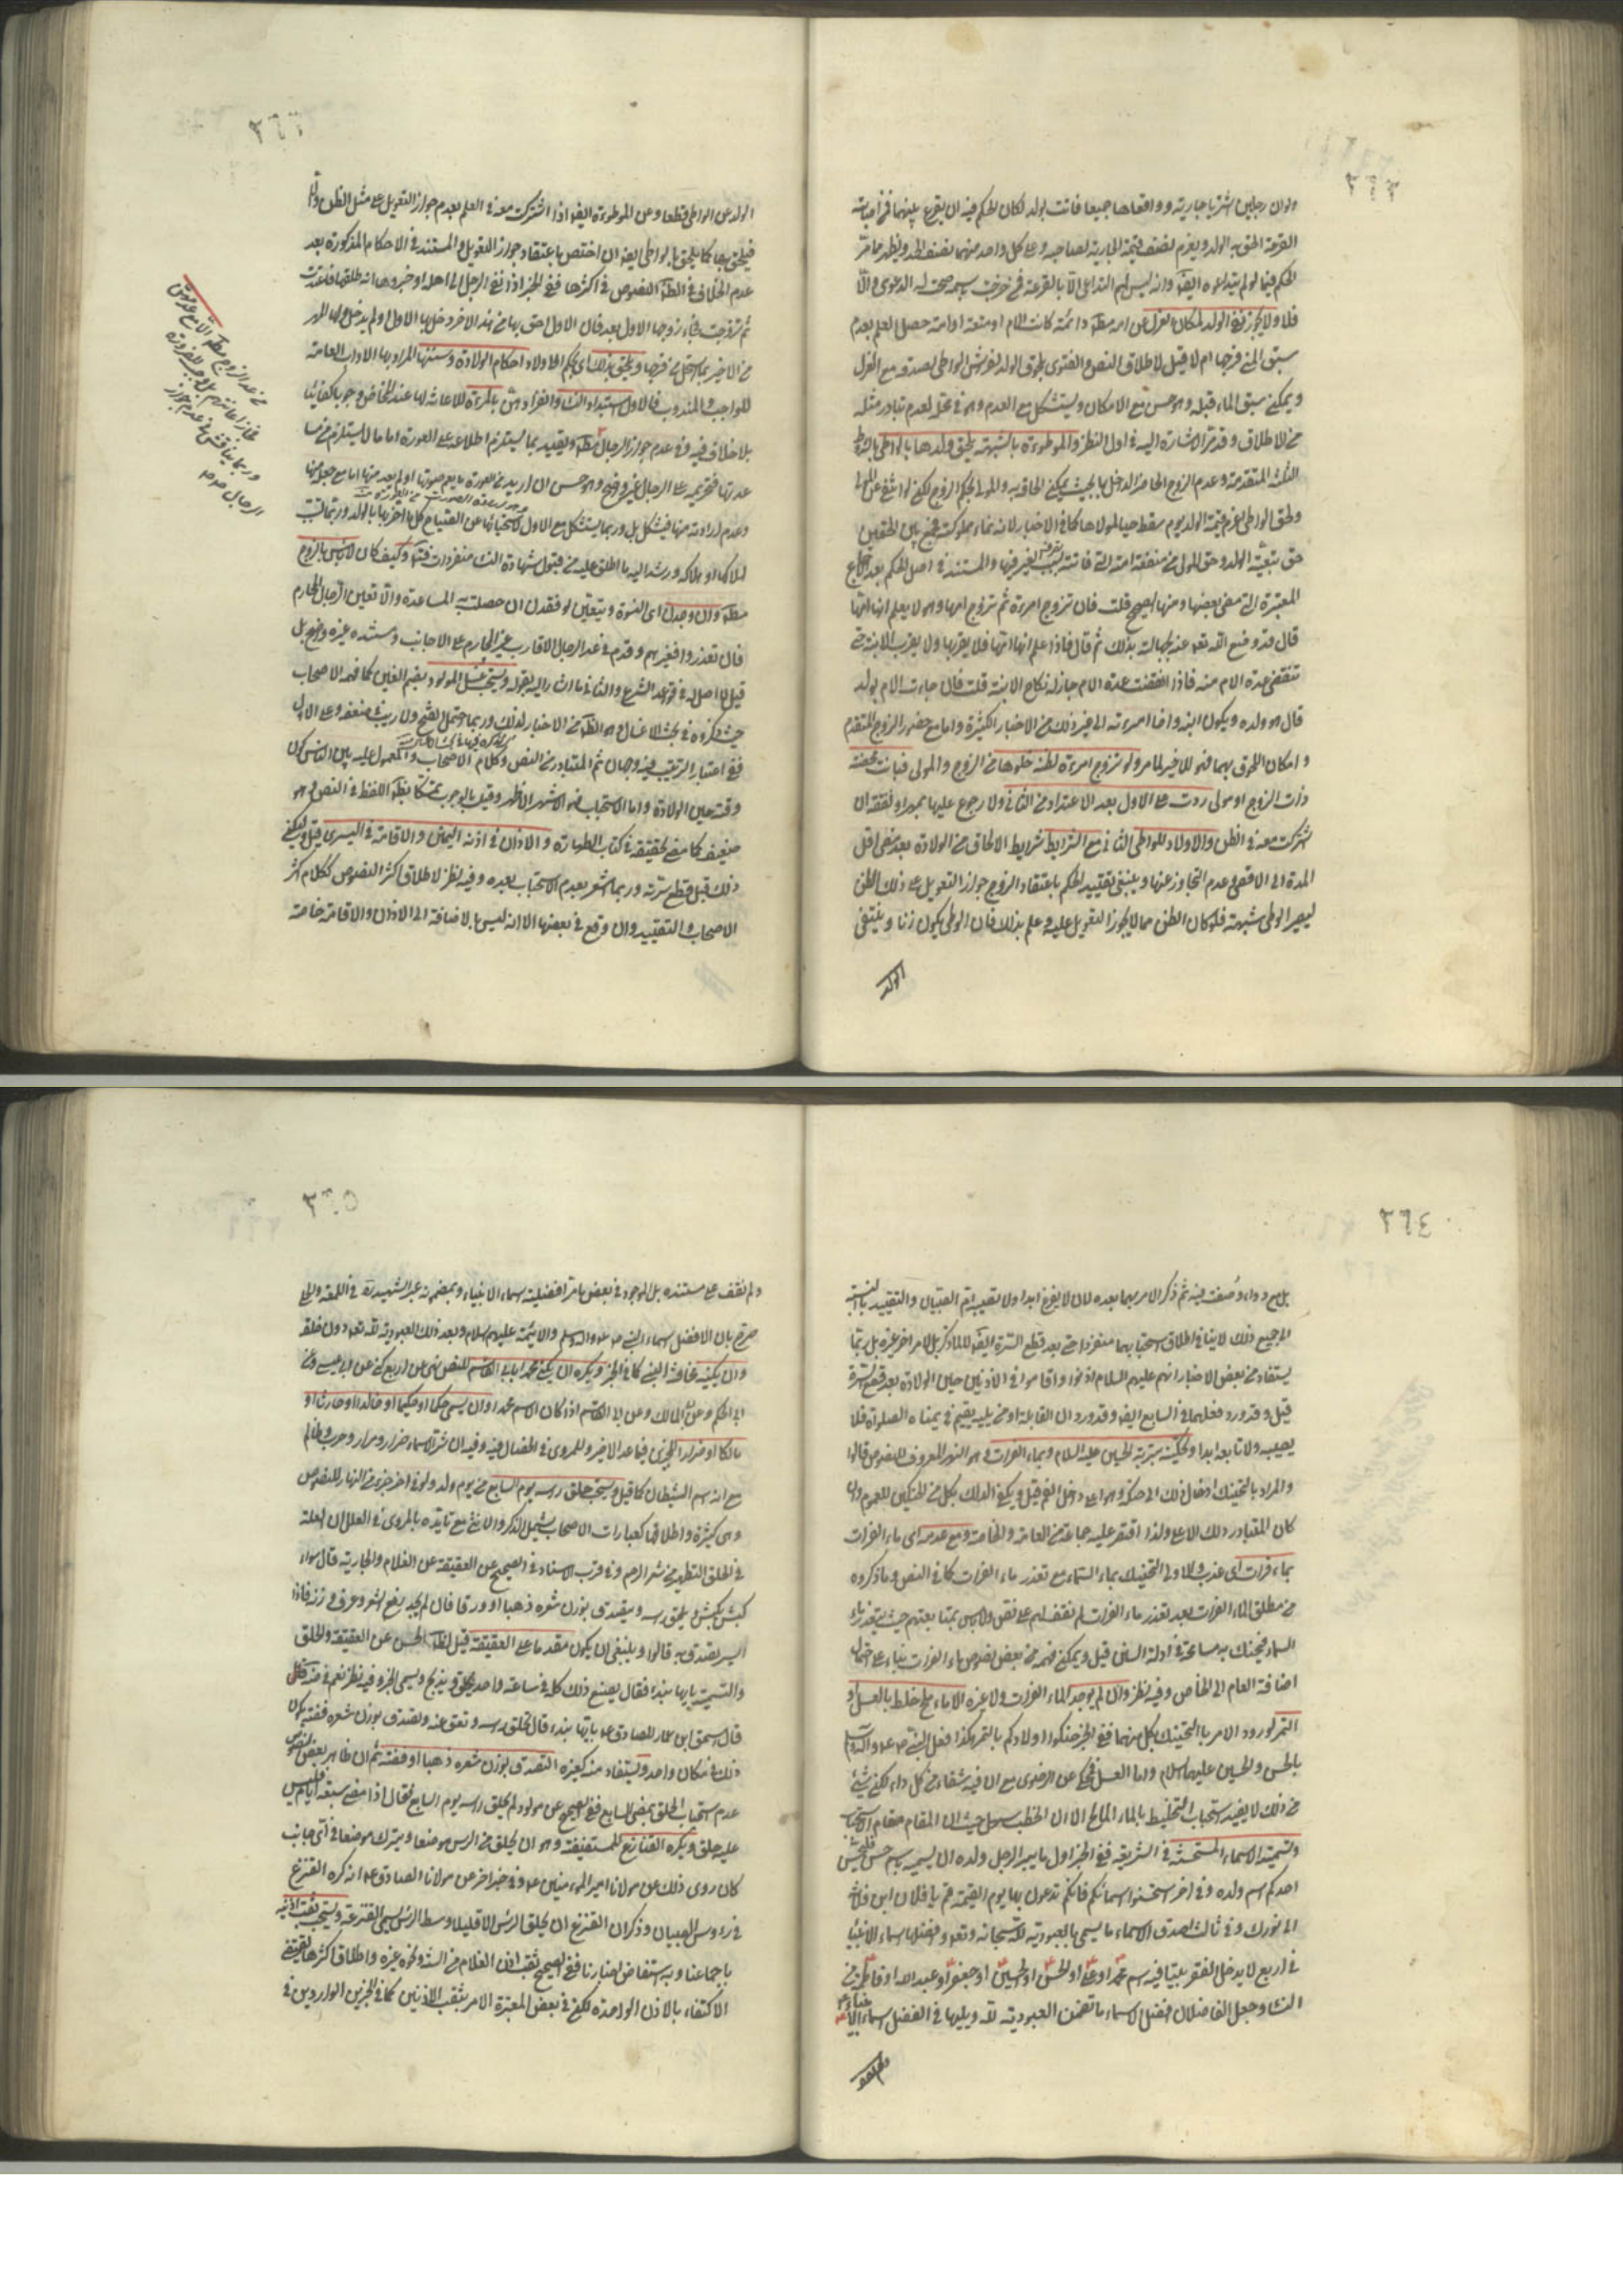 ٣٦٢
ولو ان رجلين اشتريا جارية وواقعاها جميعا فاتت بولد لكان الحكم فيه ان يقرع بينهما فمن اصابته
القرعة الحق به الولد ويغرم نصف قيمة الجارية لصاحبه وعلى كل واحد منهما نصف الحد ويظهر مما مرّ
الحكم فيما لو لم يتداعوه ايضا وانه ليس لهم التداعي الا بالقرعة فمن خرجت سهمه صحت له الدعوى والّا
فلا ولا يجوز نفي الولد لمكان العزل عن امه مطلقا دائمة كانت الام او متعة او امة حصل العلم بعدم
سبق المني فرجها ام لا قيل لاطلاق النص والفتوى بلحوق الولد لفراش الواطي لصدقه مع العزل
ويمكن سبق الماء قبله وهو حسن مع الامكان ويستشكل مع العدم وهو في محله لعدم تبادر مثله
من الاطلاق وقد مرّ الاشارة اليه في اول النظر والموطوءة بالشبهة يلحق ولدها بالواطي بالشروط
الثلثة المتقدمة وعدم الزوج الحاضر الداخل بها بحيث يمكن الحاقه به والمولى بحكم الزوج لكن لو انتفى عن المولى
ولحق الواطي اغرم قيمة الولد يوم سقط حيا لمولاها كما في الاخبار لانه نماء مملوكته فجمع بين الحقين
حق تبعية الولد وحق المولى من منفعة امته التي فاتته بسبب تصرف الغير فيها والمستند في اصل الحكم بعد الاجماع
المعتبرة التي مضى بعضها ومنها الصحيح قلت فان تزوج امرءة ثم تزوج امها وهو لا يعلم انها امها
قال قد وضع الله تعالى عنه بجهالته بذلك ثم قال فاذا علم انها امها فلا يقربها ولا يقرب الابنة حتى
تنقضي عدة الام منه فاذا انقضت عدة الام جاز له نكاح الابنة قلت فان جاءت الام بولد
قال هو ولده ويكون ابنه واخا امرءته الى غير ذلك من الاخبار الكثيرة واما مع حضور الزوج المتقدم
وامكان اللحوق بهما فهو للاخير لما مر ولو تزوج امرءة لظنه خلوها من الزوج والمولى فبانت محصنة
ذات الزوج او مولى ردت على الاول بعد الاعتداد من الثاني ولا رجوع عليها بمهر او نفقة ان
شركت معه في الظن والاولاد للواطي الثاني مع الشرايط شرايط الالحاق من الولادة بعد مضي اقل
المدة الى الاقصى وعدم التجاوز عنها وينبغي تقييد الحكم باعتقاد الزوج جواز التعويل على ذلك الظن
ليصير الوطي شبهة فلو كان الظن مما لا يجوز التعويل عليه وعلم بذلك فان الوطي يكون زنا وينتفي
الولد
٣٦٣
الولد عن الواطي قطعا وعن الموطوءة ايضا اذا اشتركت معه في العلم بعدم جواز التعويل على مثل الظن والّا
فيلحق بها كما يلحق بالواطي ايضا ان اختص باعتقاد جواز التعويل والمستند في الاحكام المذكورة بعد
عدم الخلاف في الظاهر النصوص في اكثرها ففي الخبر اذا نعى الرجل الى اهله او خبروها انه طلقها فاعتدت
ثم تزوجت فجاء زوجها الاول بعد فان الاول احق بها من هذا الاخر دخل بها الاول او لم يدخل ولها المهر
من الاخير بما استحل من فرجها ويلحق بذلك اي بحكم الاولاد احكام الولادة وسننها المراد بها الاداب العامة
للواجب والمندوب فالاول استبداد النساء وانفرادهن بالمرءة للاعانة لها عند المخاض وجوبا كفائيا
بلا خلاف فيه وفي عدم جواز الرجال مطلقا ويقيد بما يستلزم اطلاعه على العورة اما ما لا يستلزم من مسا
عدتها فتحريمه على الرجال غير واضح وهو حسن ان اريد من العورة ما يعم صوتها او لم يعد منها اما مع جعل منها
وعدم ارادته منها فيشكل بل وربما يستشكل مع الاول لاستحيائها عن الصياح كل ما اخذ بها بالولد وربما تسبب
لهلاكها او هلاكه ويرشد اليه ما اطلق عليه من قبول شهادة النساء منفردات فتأمل وكيف كان لا بأس بالزوج
مطلقا وان وجدن اي النسوة ويتعين لو فقدن ان حصلت به المساعدة والا تعين الرجال المحارم
فان تعذروا فغيرهم وقدم في غير الرجال الاقارب غير المحارم على الاجانب ومستنده غير واضح بل
قيل لا اصل له في قواعد الشرع والثاني ما اشار اليه بقوله ويستحب غسل المولود بضم الغين كما فهمه الاصحاب
حيث ذكروه في بحث الاغسال وهو الظاهر من الاخبار لذلك وربما احتمل الفتح ولا ريب في ضعفه وعلى الاول
ففي اعتبار الترتيب فيه وجهان ثم المتبادر من النص وكلام الاصحاب والمعمول عليه بين الناس كون
وقته حين الولادة واما الاستحباب فهو الاشهر الاظهر وقيل بالوجوب تمسكا بظاهر اللفظ في النص وهو
ضعيف كما مضى تحقيقه في كتاب الطهارة والاذان في اذنه اليمنى والاقامة في اليسرى قيل وليكن
ذلك قبل قطع سرته وربما اشعر بعدم الاستحباب بعده وفيه نظر لاطلاق اكثر النصوص ككلام اكثر
الاصحاب والتقييد وان وقع في بعضها الا انه ليس بالاضافة الى الاذان والاقامة خاصة
٣٦٤
بل مع دواء وصفت فيه ثم ذكر الامر بهما بعده لان لا يفزع ابدا ولا تصيبه ام الصبيان والتقييد بالنسبة
الى جميع ذلك لا ينافي اطلاق استحبابهما منفردا حتى بعد قطع السرة ايضا لا لما ذكر بل لامر اخر غيره بل ربما
يستفاد من بعض الاخبار انهم عليهم السلام اذنوا واقاموا في الاذنين حين الولادة بعد قطع السرة
قيل وقد ورد فعلهما في السابع ايضا وقد ورد ان القابلة او من يليه يقيم في يمناه الصلوة فلا
يصيبه ولا تابعه ابدا وتحنيكه بتربة الحسين عليه السلام وبماء الفرات هو النهر المعروف للنصوص قالوا
والمراد بالتحنيك ادخال ذلك الى حنكه وهو اعلى داخل الفم قيل ويكفي الدلك بكل من الحنكين للعموم وان
كان المتبادر دلك الاعلى ولذا اقتصر عليه جماعة من العامة والخاصة ومع عدمه اي ماء الفرات
بماء فرات اي عذب والاولى التحنيك بماء السماء مع تعذر ماء الفرات كما في النص وما ذكروه
من مطلق الماء الفرات بعد تعذر ماء الفرات لم نقف لهم على نص ولا بأس بمتابعتهم حيث يتعذر ماء
السماء فيحنك به مسامحة في ادلة السنن قيل ويمكن فهمه من بعض نصوص ماء الفرات بناء على احتمال
اضافة العام الى الخاص وفيه نظر وان لم يوجد الماء الفرات ولا غيره الا ماء ملح خلط بالعسل او
التمر لورود الامر بالتحنيك بكل منهما ففي الخبر حنكوا اولادكم بالتمر هكذا فعل النبي صلى الله عليه واله وسلم
بالحسن والحسين عليهما السلام واما العسل فحكي عن الرضوي مع ان فيه شفاء من كل داء لكن شيئ
من ذلك لا يفيد استحباب التخليط بالماء المالح الا ان الخطب سهل حيث ان المقام مقام الاستحباب
وتسميته الاسماء المستحسنة في الشريعة ففي الخبر اول ما يبر الرجل ولده ان يسميه باسم حسن فليحسن
احدكم اسم ولده وفي اخر استحسنوا اسمائكم فانكم تدعون بها يوم القيمة قم يا فلان ابن فلان
الى نورك وفي ثالث اصدق الاسماء ما يسمى بالعبودية لله سبحانه وتعالى وافضلها اسماء الانبياء
في اربع لا يدخل الفقر بيتا فيه اسم محمد او علي او الحسن او الحسين او جعفر او عبد الله او فاطمة من
النساء وجعل الفاضلان افضل الاسماء ما تضمن العبودية لله ويليها في الفضل اسماء الانبياء
ولم نقف
٣٦٥
ولم نقف على مستنده بل الموجود في بعض ما مر افضلية اسماء الانبياء وبمضمونه عبر الشهيد ره في اللمعة والحلي
صرح بان الافضل اسماء النبي صلى الله عليه واله وسلم والائمة عليهم السلام وبعد ذلك العبودية لله تعالى دون خلقه
وان يكنيه مخافة النبز كما في الخبر ويكره ان يكنى محمدا بابي القاسم للنص نهى عن اربع كنى عن ابي عيسى وعن
ابي الحكم وعن ابي مالك وعن ابي القاسم اذا كان الاسم محمدا وان يسمى حكما او حكيما او خالدا او حارثا او
مالكا او ضرارا للخبرين فيما عدا الاخير وللمروي في الخصال فيه وفيه ان شر الاسماء ضرار ومرار وحرب وظالم
مع انه اسم الشيطان كما قيل ويستحب حلق راسه يوم السابع من يوم ولد ولو في اخر جزء من النهار للنصوص
وهي كثيرة واطلاقها كعبارات الاصحاب يشمل الذكر والانثى مع تايده بالمروي في العلل ان العلة
في الحلق التطهير من شعر الرحم وفي قرب الاسناد في الصحيح عن العقيقة عن الغلام والجارية قال سواء
كبش كبش ويحلق راسه ويتصدق بوزن شعره ذهبا او ورقا فان لم يجد رفع الشعر وعرف وزنه فاذا
ايسر تصدق به قالوا وينبغي ان يكون مقدما على العقيقة قيل لظاهر الحسن عن العقيقة والحلق
والتسمية بايها يبدء فقال يصنع ذلك كله في ساعة واحدة يحلق ويذبح ويسمى الخبر وفيه نظر نعم في
قال اسحق ابن عمار للصادق ع بايها يبدء قال تحلق راسه وتعق عنه وتصدق بوزن شعره فضة يكون
ذلك في مكان واحد ويستفاد منه كغيره التصدق بوزن شعره ذهبا او فضة ثم ان ظاهر بعض النصوص
عدم استحباب الحلق بمضي السابع ففي الصحيح عن مولود لم يحلق راسه يوم السابع فقال اذا مضى سبعة ايام فليس
عليه حلق ويكره القنازع للمستفيضة وهو ان يحلق من الراس موضعا ويترك موضعا في اي جانب
كان روي ذلك عن مولانا امير المؤمنين ع وفي خبر اخر عن مولانا الصادق ع انه كره القنزع
في رءوس الصبيان وذكر ان القنزع ان يحلق الراس الا قليلا وسط الراس يسمى القنزعة ويستحب ثقب اذنه
باجماعنا وبه استفاض اخبارنا ففي الصحيح ثقب اذن الغلام من السنة ونحوه غيره واطلاق اكثرها يقتضي
الاكتفاء بالاذن الواحدة لكن في بعض المعتبرة الامر بثقب الاذنين كما في الخبرين الواردين في